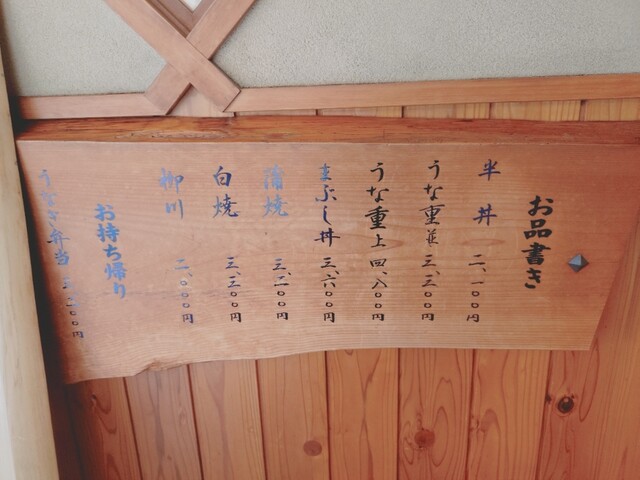 お品書き
半丼 二、一〇〇円
うな重並 三、三〇〇円
うな重上 四、八〇〇円
まぶし丼 三、六〇〇円
蒲焼 三、二〇〇円
白焼 三、三〇〇円
柳川 二、〇〇〇円
お持ち帰り
うなぎ弁当 三、二〇〇円